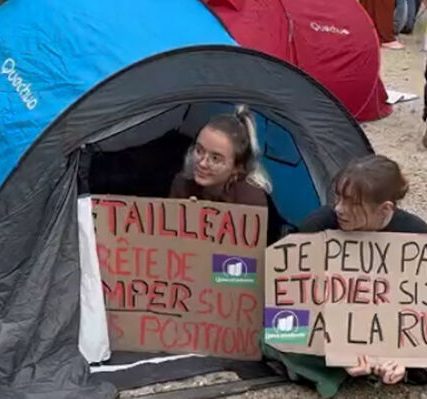 Quechua
Quechua
ETAILLEAU
RÊTE DE
MPER SUR
S POSITIONS
JE PEUX PA
ETUDIER SI J
A LA RU